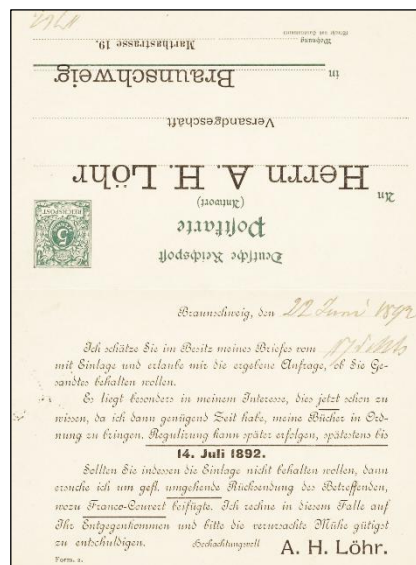 Deutsche Reichspost
Postkarte
(Antwort)
An
Herrn A. H. Löhr
Versandgeschäft
in
Braunschweig
Wohnung
Marthastrasse 19.
REICHSPOST
5
Braunschweig, den 22 Juni 1892
Ich schätze Sie im Besitz meines Briefes vom 17 d. Mts
mit Einlage und erlaube mir die ergebene Anfrage, ob Sie Ge-
sandtes behalten wollen.
Es liegt besonders in meinem Interesse, dies jetzt schon zu
wissen, da ich dann genügend Zeit habe, meine Bücher in Ord-
nung zu bringen, Regulirung kann später erfolgen, spätestens bis
14. Juli 1892.
Sollten Sie indessen die Einlage nicht behalten wollen, dann
ersuche ich um gefl. umgehende Rücksendung des Betreffenden,
wozu Franco-Couvert beifügte. Ich rechne in diesem Falle auf
Ihr Entgegenkommen und bitte die verursachte Mühe gütigst
zu entschuldigen.
Hochachtungsvoll
A. H. Löhr.
Form. 1.